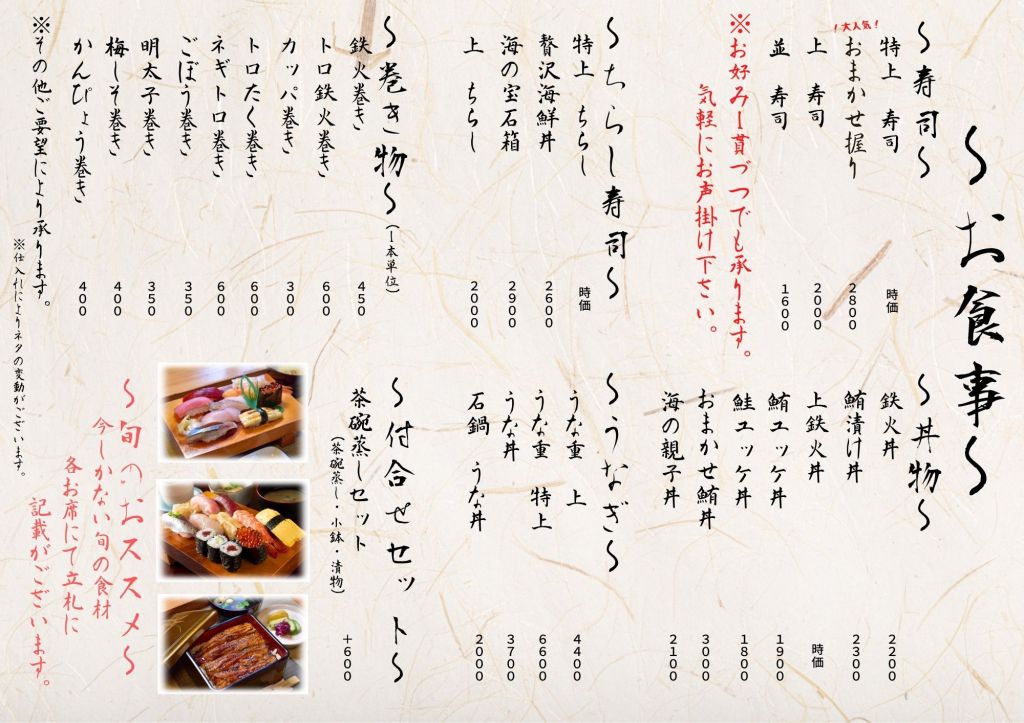 ～お食事～
～寿司～
特上 寿司 時価
！大人気！
おまかせ握り 2800
上 寿司 2000
並 寿司 1600
※お好み1貫づつでも承ります。
気軽にお声掛け下さい。
～丼物～
鉄火丼 2200
鮪漬け丼 2300
上鉄火丼 時価
鮪ユッケ丼 1900
鮭ユッケ丼 1800
おまかせ鮪丼 3000
海の親子丼 2100
～ちらし寿司～
特上 ちらし 時価
贅沢海鮮丼 2600
海の宝石箱 2900
上 ちらし 2000
～うなぎ～
うな重 上 4400
うな重 特上 6600
うな丼 3700
石鍋 うな丼 2000
～巻き物～(1本単位)
鉄火巻き 450
トロ鉄火巻き 600
カッパ巻き 300
トロたく巻き 600
ネギトロ巻き 600
ごぼう巻き 350
明太子巻き 350
梅しそ巻き 400
かんぴょう巻き 400
※その他ご要望により承ります。
※仕入れによりネタの変動がございます。
～付合せセット～
茶碗蒸しセット +600
(茶碗蒸し・小鉢・漬物)
～旬のおススメ～
今しかない旬の食材
各お席にて立札に
記載がございます。